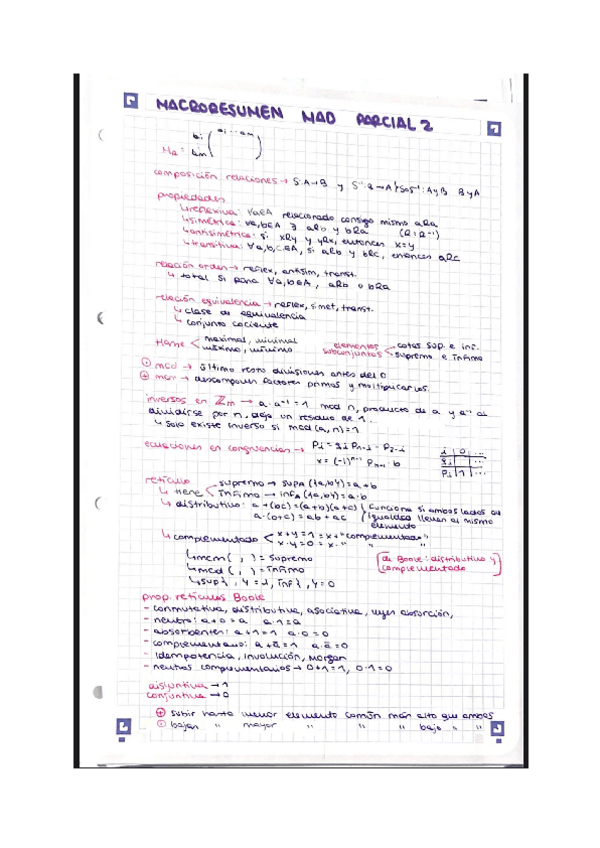 MACRORESUMEN MAD PARCIAL 2
a1 ... am
bi
bm
composición relaciones → S: A→B y S⁻¹: B→A
propiedades
↳ reflexiva: ∀a∈A relacionado consigo mismo aRa
↳ simétrica: ∀a,b∈A aRb y bRa (R=R⁻¹)
↳ antisimétrica: si xRy y yRx, entonces x=y
↳ transitiva: ∀a,b,c∈A, si aRb y bRc, entonces aRc
relación orden → reflex, antisim, transt.
↳ total si para ∀a,b∈A, aRb o bRa
relación equivalencia → reflex, simet, transt.
↳ clase de equivalencia
↳ conjunto cociente
tiene < maximal, minimal
máximo, mínimo
elementos subconjuntos < cotas sup. e inf.
supremo e ínfimo
mcd → último resto divisiones antes del 0
⊕ mcm → descomponer factores primos y multiplicarlos.
inversos en Zm → a·a⁻¹=1 mod n, producto de a y a⁻¹ al
dividirse por n, deja un residuo de 1.
↳ solo existe inverso si mcd(a,n)=1
ecuaciones en congruencias →
x = (-1)ⁿ⁻¹ Pn-1 · b
i 0 ...
qi ...
Pi 1 ...
retículo
↳ tiene < supremo → supA({a,b})=a+b
ínfimo → infA({a,b})=a·b
↳ distributivo: a+(bc)=(a+b)(a+c)
a·(b+c)=ab+ac
funciona si ambos lados de igualdad llevan al mismo elemento
↳ complementado < x+y=1 = x+"complementado"
x·y=0 = x·" "
↳ mcm( , ) = supremo
↳ mcd( , ) = ínfimo
↳ sup{ , }=1, inf{ , }=0
de Boole: distributivo y
complementado
prop. retículos Boole
- conmutativa, distributiva, asociativa, leyes absorción,
- neutro: a+0=a a·1=a
- absorbentes: a+1=1 a·0=0
- complementario: a+ā=1 a·ā=0
- Idempotencia, involución, Morgan
- neutros complementarios → 0+1=1, 0·1=0
disjuntiva → 1
conjuntiva → 0
⊕ subir hasta menor elemento común más alto que ambos
⊙ bajar " mayor " " " bajo " "